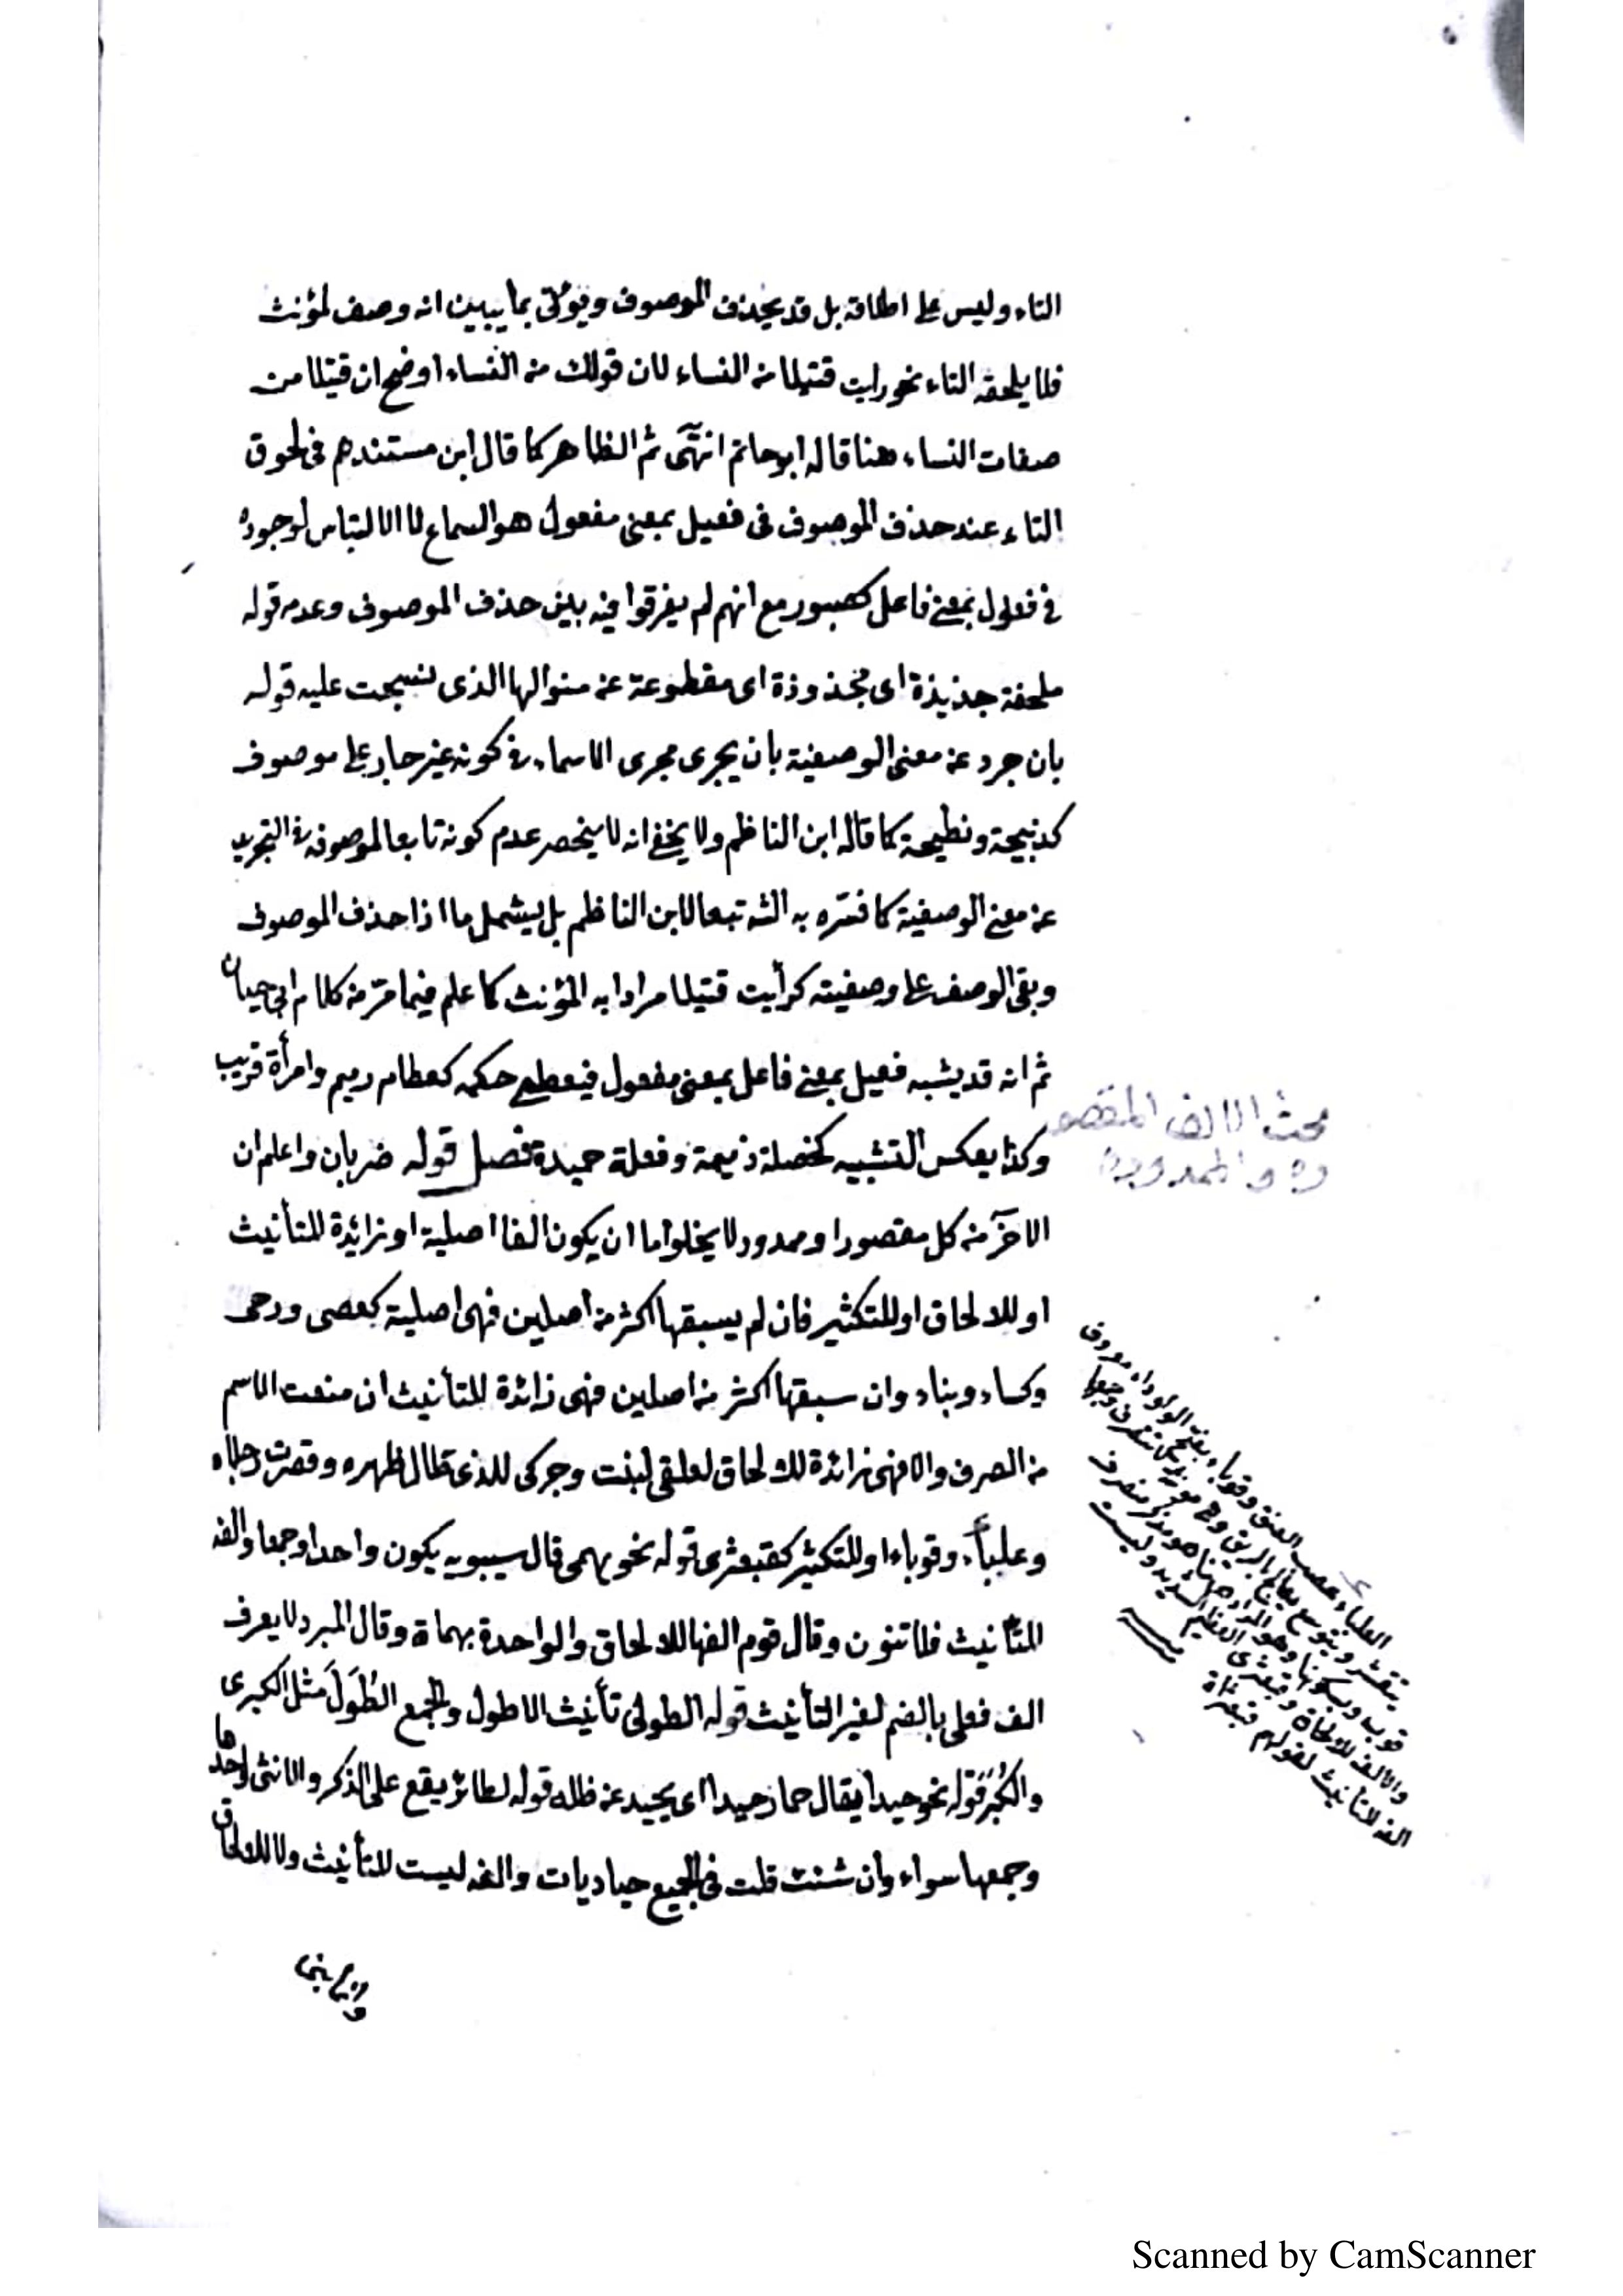 التاء وليس على اطلاقه بل قد يحذف الموصوف ويؤتى بما يبين انه وصف لمؤنث
فلا يلحقه التاء نحو رايت قتيلا من النساء لان قولك من النساء اوضح ان قتيلا من
صفات النساء هنا قاله ابو حاتم انتهى ثم الظاهر كما قال ابن مستندهم فى لحوق
التاء عند حذف الموصوف فى فعيل بمعنى مفعول هو السماع لا الالتباس لوجوده
فى فعول بمعنى فاعل كصبور مع انهم لم يفرقوا فيه بين حذف الموصوف وعدمه قوله
ملحفة جذيذة اى مجذوذة اى مقطوعة عن منوالها الذى نسجت عليه قوله
بان جرد عن معنى الوصفية بان يجرى مجرى الاسماء فى كونه غير جار على موصوف
كذبيحة ونطيحة كما قاله ابن الناظم ولا يخفى انه لا ينحصر عدم كونه تابعا لموصوفه فى التجريد
عن معنى الوصفية كما فسّره به الشه تبعا لابن الناظم بل يشمل ما اذا حذف الموصوف
وبقى الوصف على وصفيته كرأيت قتيلا مرادا به المؤنث كما علم فيما مرّ من كلام ابى حيان
ثم انه قد يشبه فعيل بمعنى فاعل بمعنى مفعول فيعطى حكمه كعظام رميم وامرأة قريب
وكذا يعكس التشبيه كخصلة ذميمة وفعلة حميدة فصل قوله ضربان واعلم ان
الاخر من كل مقصورا وممدود لا يخلوا ما ان يكون الفا اصلية او زائدة للتأنيث
او للالحاق او للتكثير فان لم يسبقها اكثر من اصلين فهى اصلية كعصى ورحى
وكساء وبناء وان سبقها اكثر من اصلين فهى زائدة للتأنيث ان منعت الاسم
من الصرف والا فهى زائدة للالحاق لعلقى لبنت وجركى للذى طال ظهره وقصرت رجلاه
وعلباء وقوباء او للتكثير كقبعثرى قوله نحو بهمى قال سيبويه يكون واحدا وجمعا والفه
للتأنيث فلا تنون وقال قوم الفها للالحاق والواحدة بهماة وقال المبرد لا يعرف
الف فعلى بالضم لغير التأنيث قوله الطولى تأنيث الاطول والجمع الطُوَلَ مثل الكبرى
والكُبَر قوله نحو حيدا يقال حمار حيدا اى يحيد عن ظله قوله لطائر يقع على الذكر والانثى واحدها
وجمعها سواء وان شئت قلت فى الجميع حباديات والفه ليست للتأنيث ولا للالحاق
وانما بنى
مبحث الالف المقصو
ره والممدوده
العلباء عصب العنق وقوباء
والالف للالحاق وقبعثرى العظيم الشديد وليست
الفه للتأنيث لقولهم قبعثراة